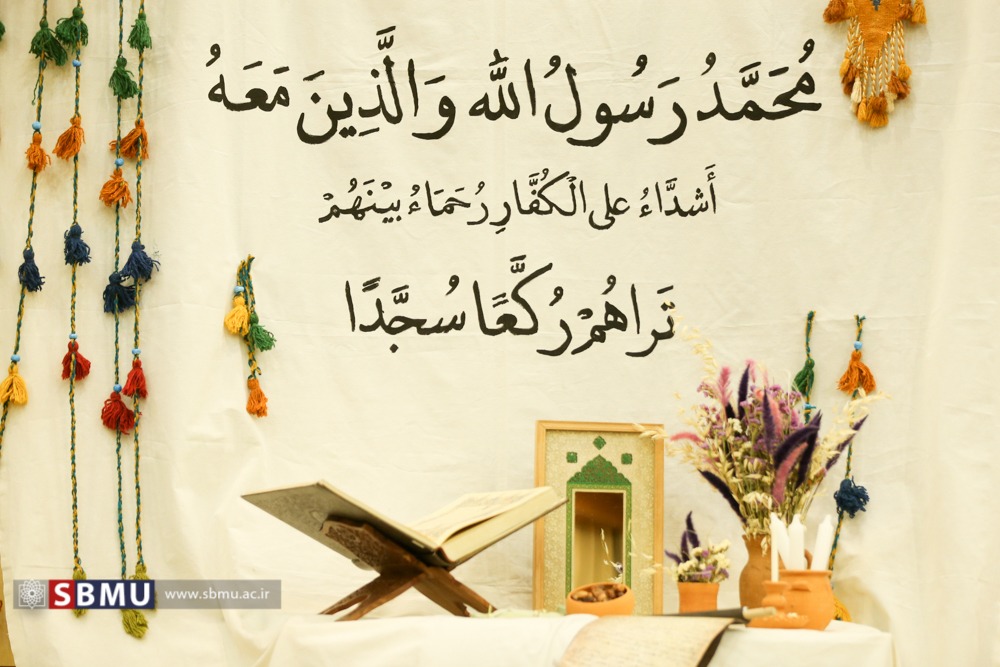 مُحَمَّدُ رَسُولُ الله وَالَّذِينَ مَعَهُ
أَشدَّاءُ على الْكُفَّارِ رُحَمَاءُ بیْنَهُمْ
تَراهُمْ رُكَّعًا سُجَّدًا
SBMU www.sbmu.ac.ir